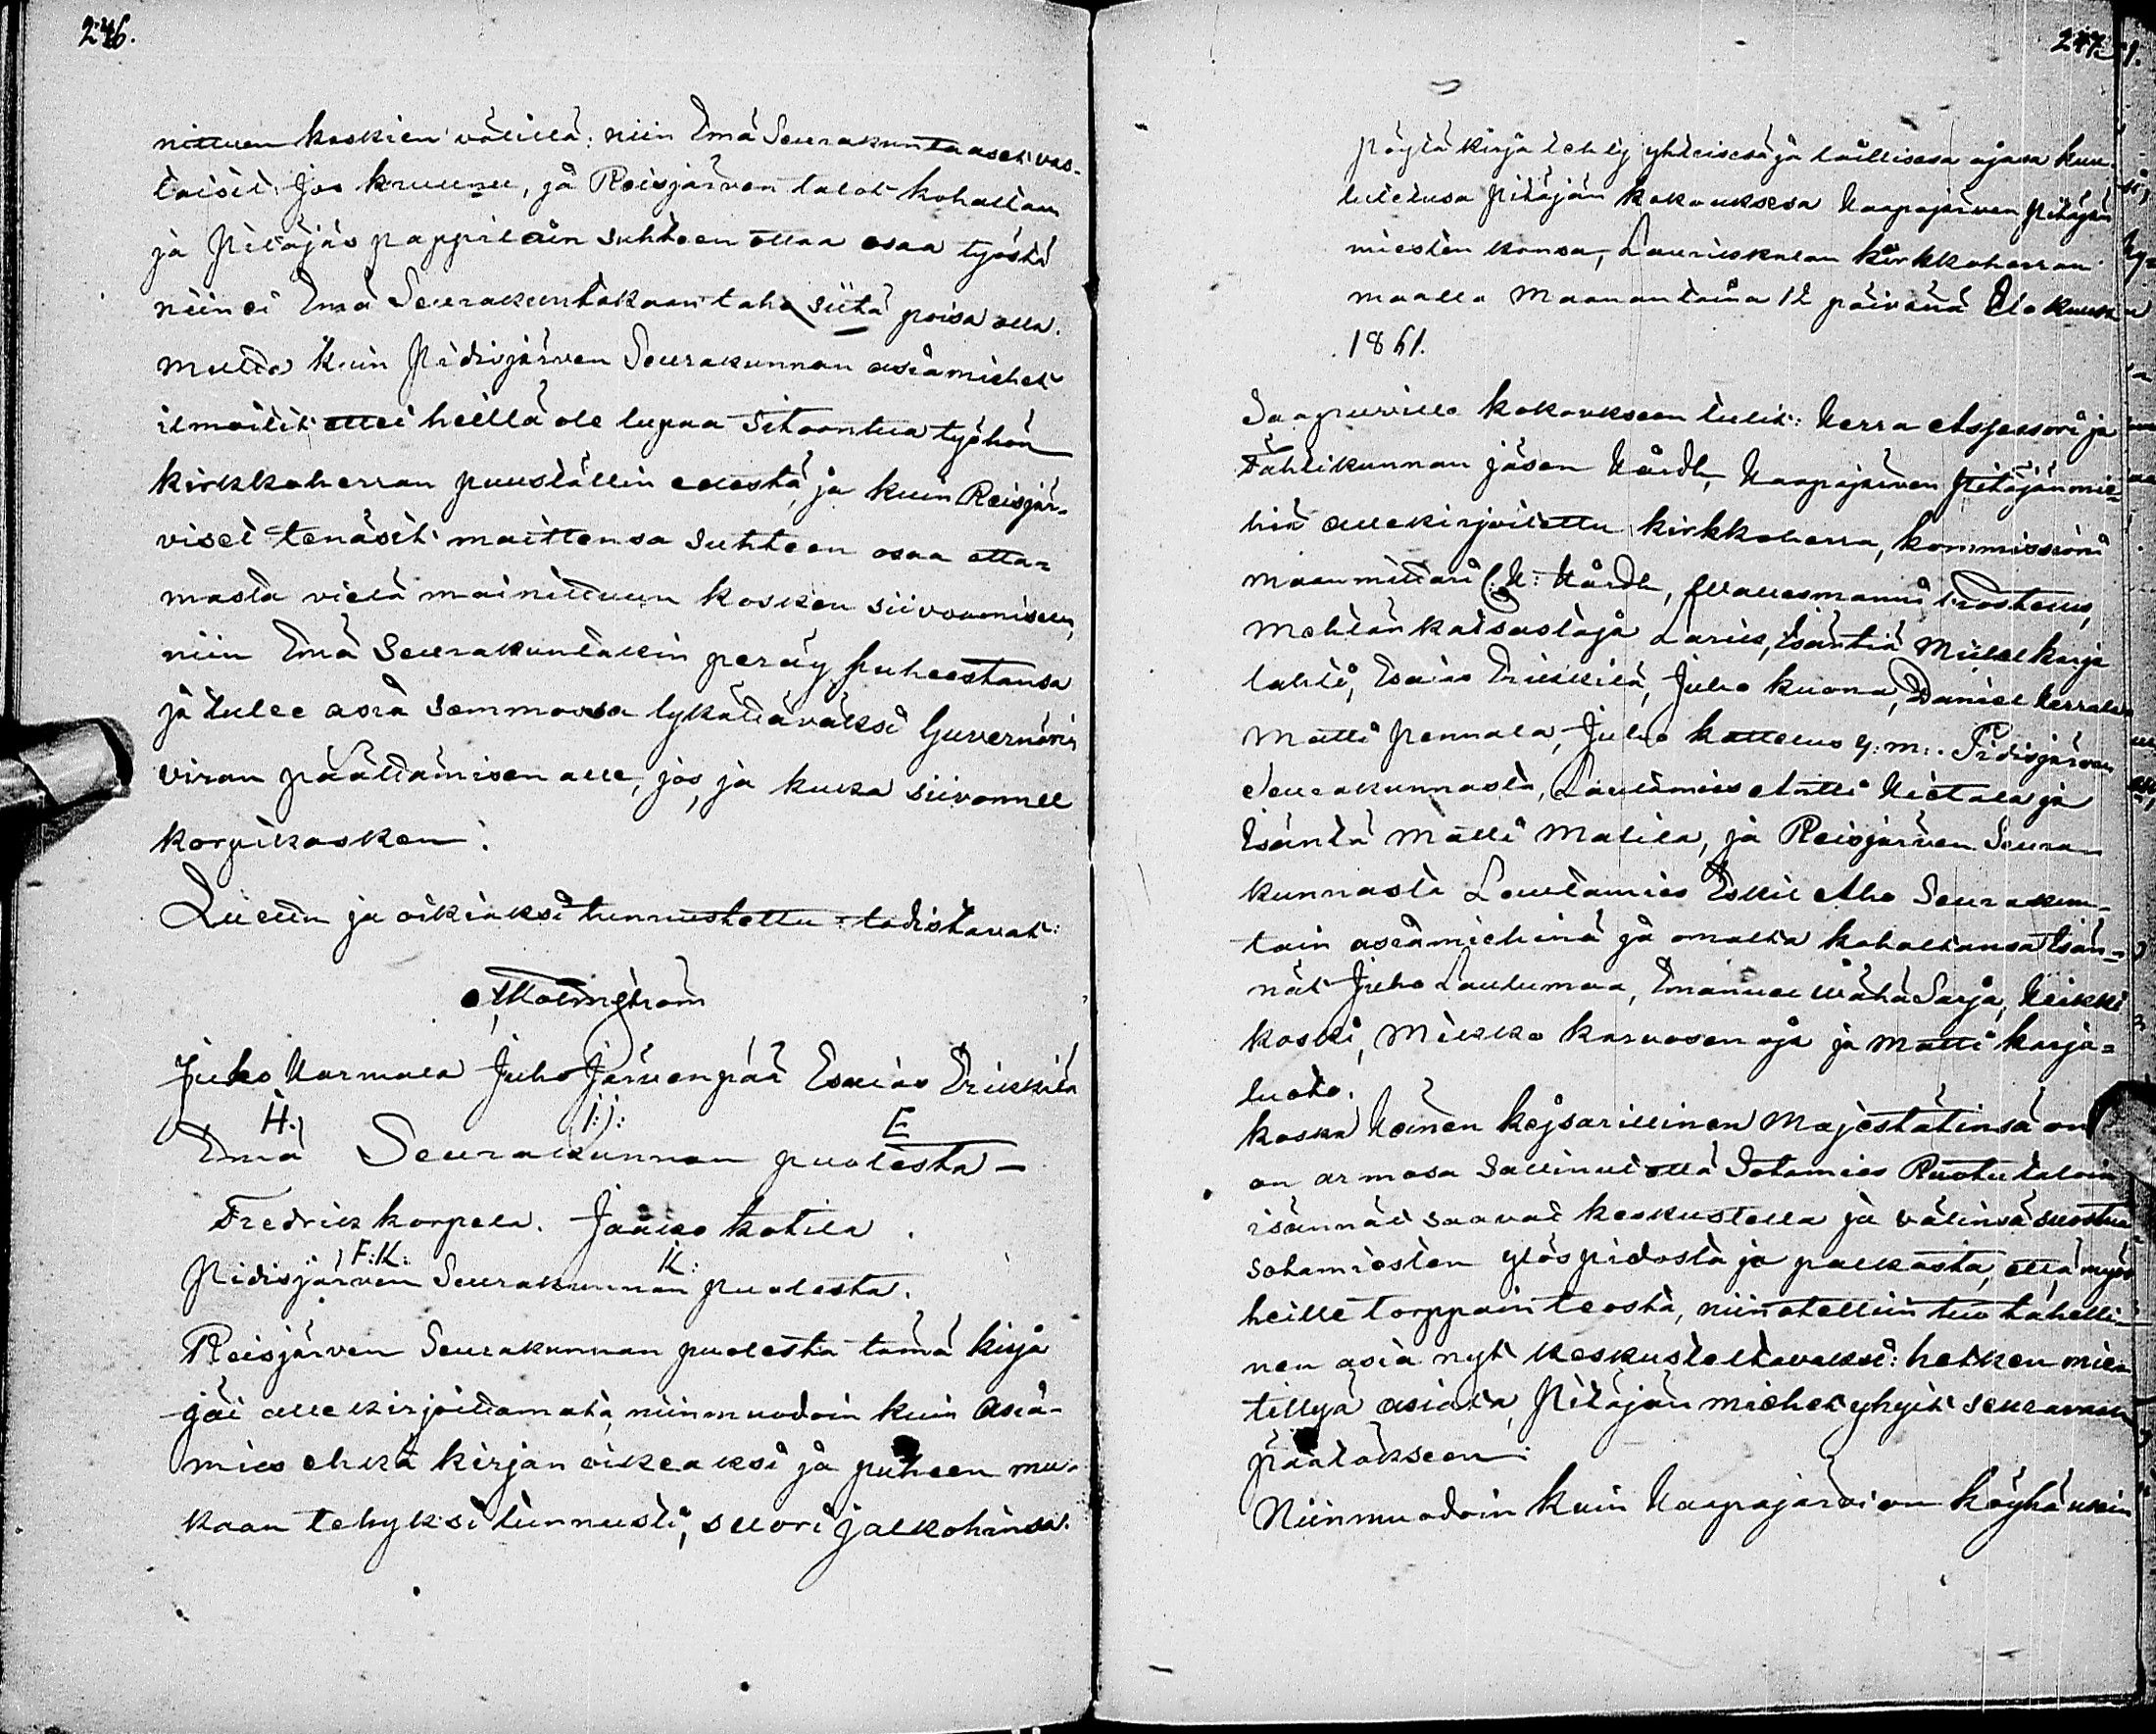 246.
nittuen koskien välillä: niin Emä Seurakunta aset vas-
taisit: Jos kruunu, ja Reisjärven talot kohallan
ja Pitäjäs pappilain suhteen ottaa osaa työstä
niin ei Emä Seurakuntakaan taho siitä poisa olla.
Mutta kuin Pidisjärven Seurakunnan asiamiehet
ilmoitit ettei heillä ole lupaa sitoontua työhön
kirkkoherran puuställin edestä, ja kuin Reisjär-
viset tenäsit maittensa suhteen osaa otta-
masta vielä mainittuun kosken siivoomiseen,
niin Emä Seurakuntakin peräy puheestansa
ja tulee asia semmoosa lykättäväksi Guvernöris
viran päättämisen alle, jos, ja kuka siivonnee
korpikosken.
Luettu ja oikiaksi tunnustettu todistavat:
Holmström
Juho Harmala Juho Järvenpää Esaias Erikkilä
H. J:J: E
Emä Seurakunnan puolesta -
Fredrik korpela. Jaakko kotila.
F:K: K:
Pidisjärven Seurakunnan puolesta.
Reisjärven Seurakunnan puolesta tämä kirja
jäi alle kirjoittamata, niinmuodoin kuin Asia-
mies ehkä kirjan oikeaksi ja puheen mu-
kaan tehyksi tunnusti, suori jalkohinsa.
247.
Pöytäkirja tehty yhteisesä ja laillisesa ajasa kuu-
lutetusa Pitäjän kokouksesa Haapajärven Pitäjän
miesten kansa, Lauriikkalan kirkkoherran
maalla Maanantaina 12 päivänä Elokuusa
1861.
Saapuville kokoukseen tulit: Herra Assessori ja
Tähtikunnan jäsen Hårdh, Haapajärven Pitäjänmie-
hiä allekirjoitettu kirkkoherra, kommissioni
maanmittari C. H: Hårdh, Wallesmanni Frosterus,
Mehtänkatsastaja Larius, Isäntiä Mikkel karja
lahti, Esaias Erikkilä, Juho kuona, Daniel Kerrala
Matti Pennala, Juho kattelus y: m:. Pidisjärven
Seurakunnasta, Lautamies Antti Hietala ja
Isäntä Matti Matila, ja Reisjärven Seura-
kunnasta Lautamies Eskil Aho Seurakun-
tain asiamiehinä ja omasta kohaltansa Isän-
nät Juho Lautumaa, Emanuel Wähä Sarja, Heikki
koski, Mikko karvosen oja ja Matti karja-
luoto.
koska Hänen kejsarillinen Majestätinsä on
on armosa sallinut että Sotamies Ruotutaloin
isännät saavat keskustella ja välinsä suostua
sotamiesten ylöspidosta ja palkasta, että myös
heille torppain teosta, niin otettiin tuo tähelli-
nen asia nyt keskusteltavaksi: hetken mie-
tittyä asiata, Pitäjän miehet yhyit seuraavaan
päätökseen:
Niinmuodoin kuin Haapajärvi on köyhä usein